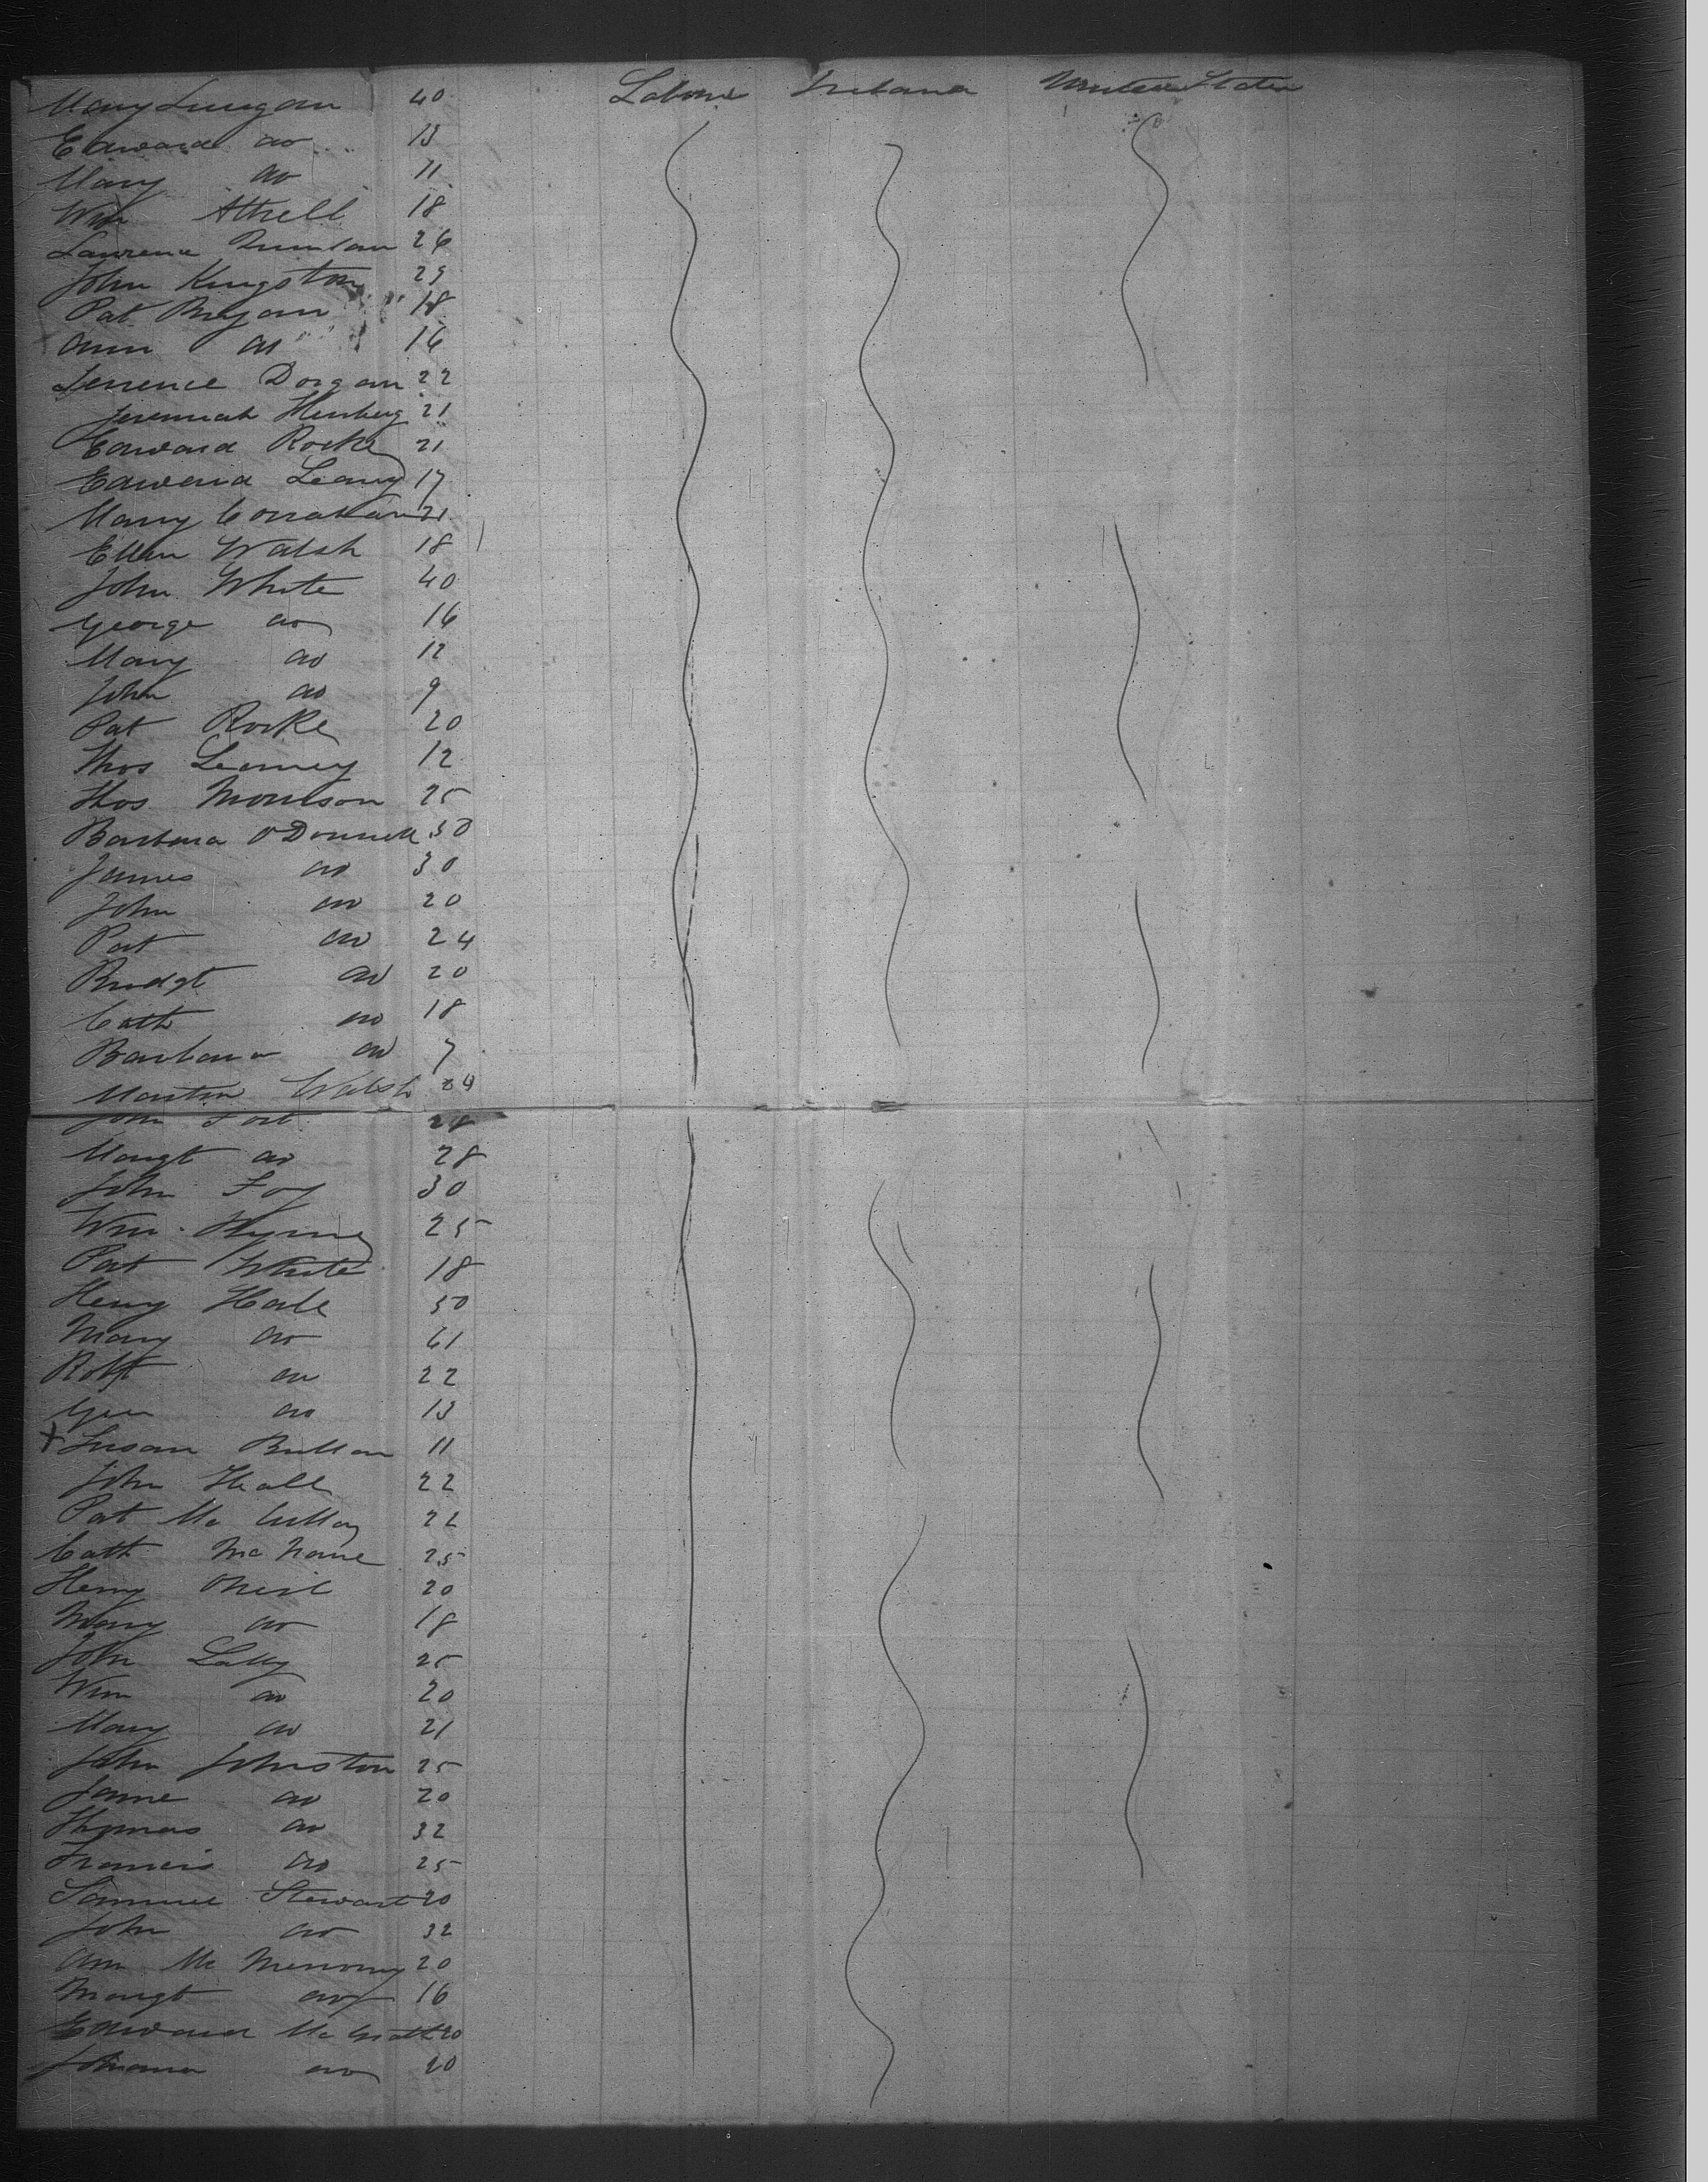 Mary 40 Labour Ireland United States
Edward do 13
Mary do 11
Wm Attrell 18
Laurence Quinlan 26
John Kingston 29
Pat Bryan 18
Ann do 16
Terrence Dorgan 22
Jeremiah 21
Edward Rorke 21
Edward Leary 17
Mary 21
Ellen Walsh 18
John White 40
George do 16
Mary do 12
John do 9
Pat Rorke 20
Thos 12
Thos Morrison 25
Barbara O'Donnell 50
James do 30
John do 20
Pat do 24
Bridgt do 20
Cath do 18
Barbara do 7
Martin Walsh 24
John 28
Margt do 28
John Foy 30
Wm 25
Pat White 18
Henry Hale 50
Mary do 61
Robt do 22
Geo do 13
+ Susan 11
John Hall 22
Pat Mc 22
Cath 25
Henry ONeil 20
Mary do 18
John Lally 25
Wm do 20
Mary do 21
John Johnston 25
Jane do 20
Thomas do 32
Francis do 25
Samuel Stewart 20
John do 32
Ann Mc 20
Margt do 16
Edward Mc Grath 20
Johanna do 20